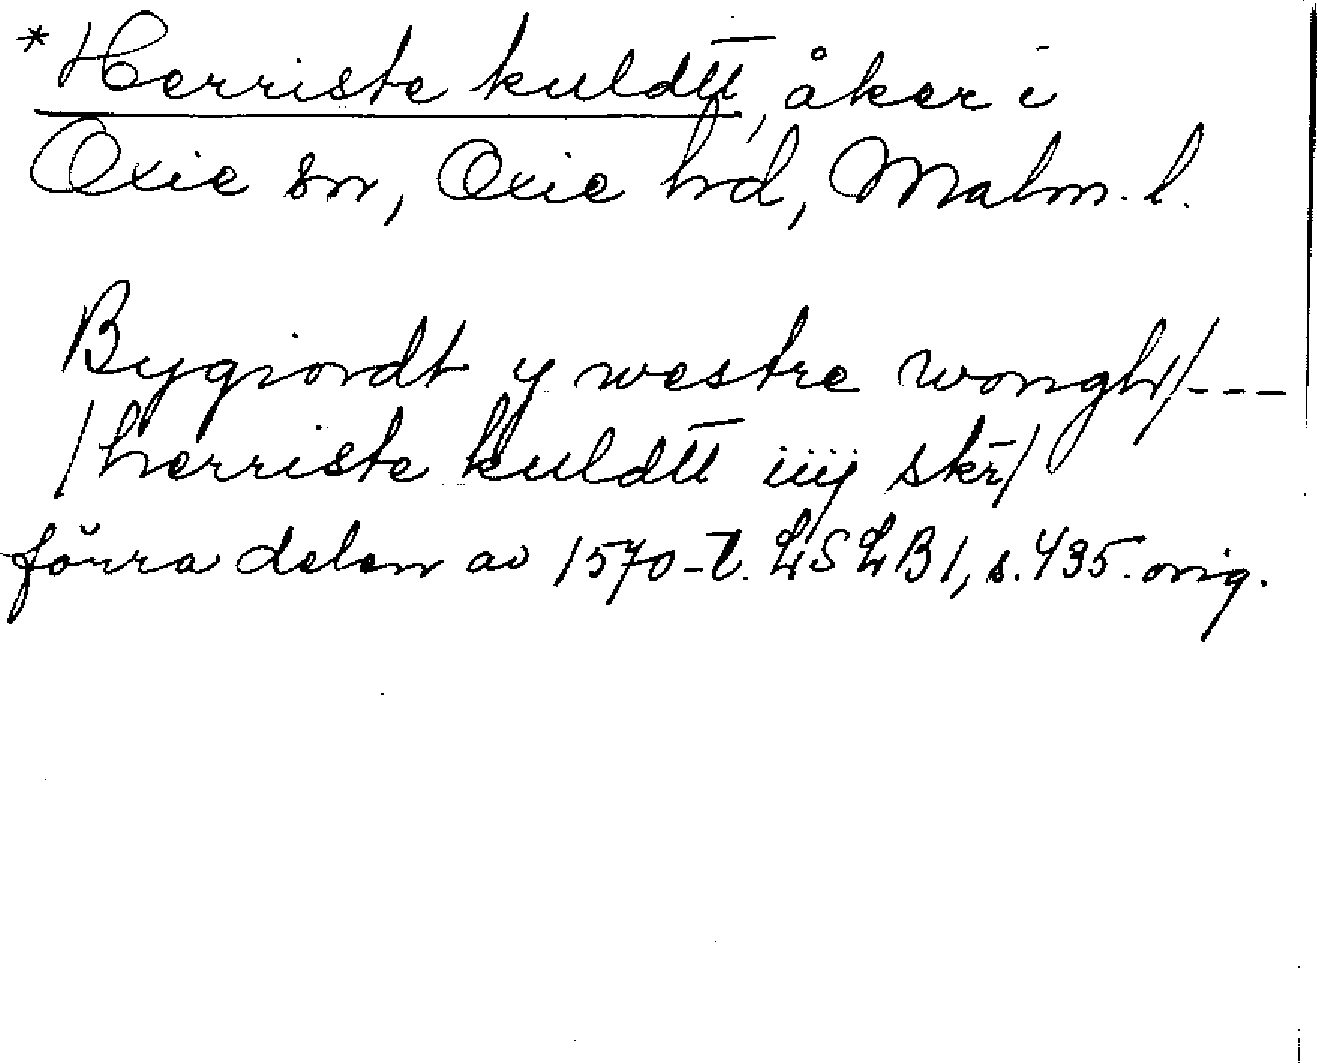 *Herriste kuldtt̅, åker i
Oxie sn, Oxie hd, Malm. l.
Bygiordt y westre wongh/---
/herriste kuldtt̅ iiij skr̄/
förra delen av 1570-t. LSLB1, s.435. orig.